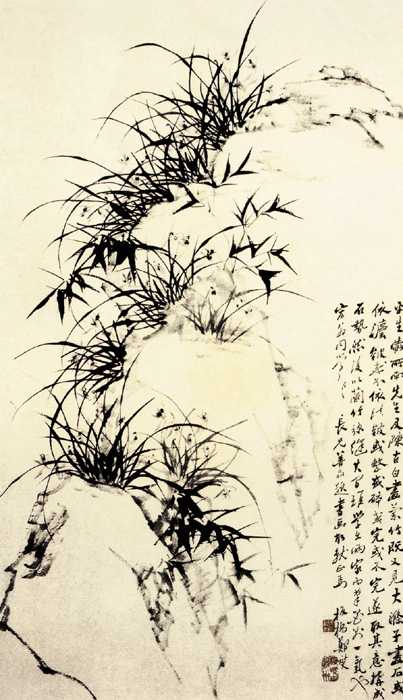 平生愛所南先生及陳古白畫蘭竹既又見大滌子畫石或
依法皴或不依法皴或整或碎或完或不完遂取其意構成
石勢然後以蘭竹彌縫其間雖學出兩家而筆墨則一氣也
宏翁同學老長兄善品題書畫故就正焉 板橋鄭燮